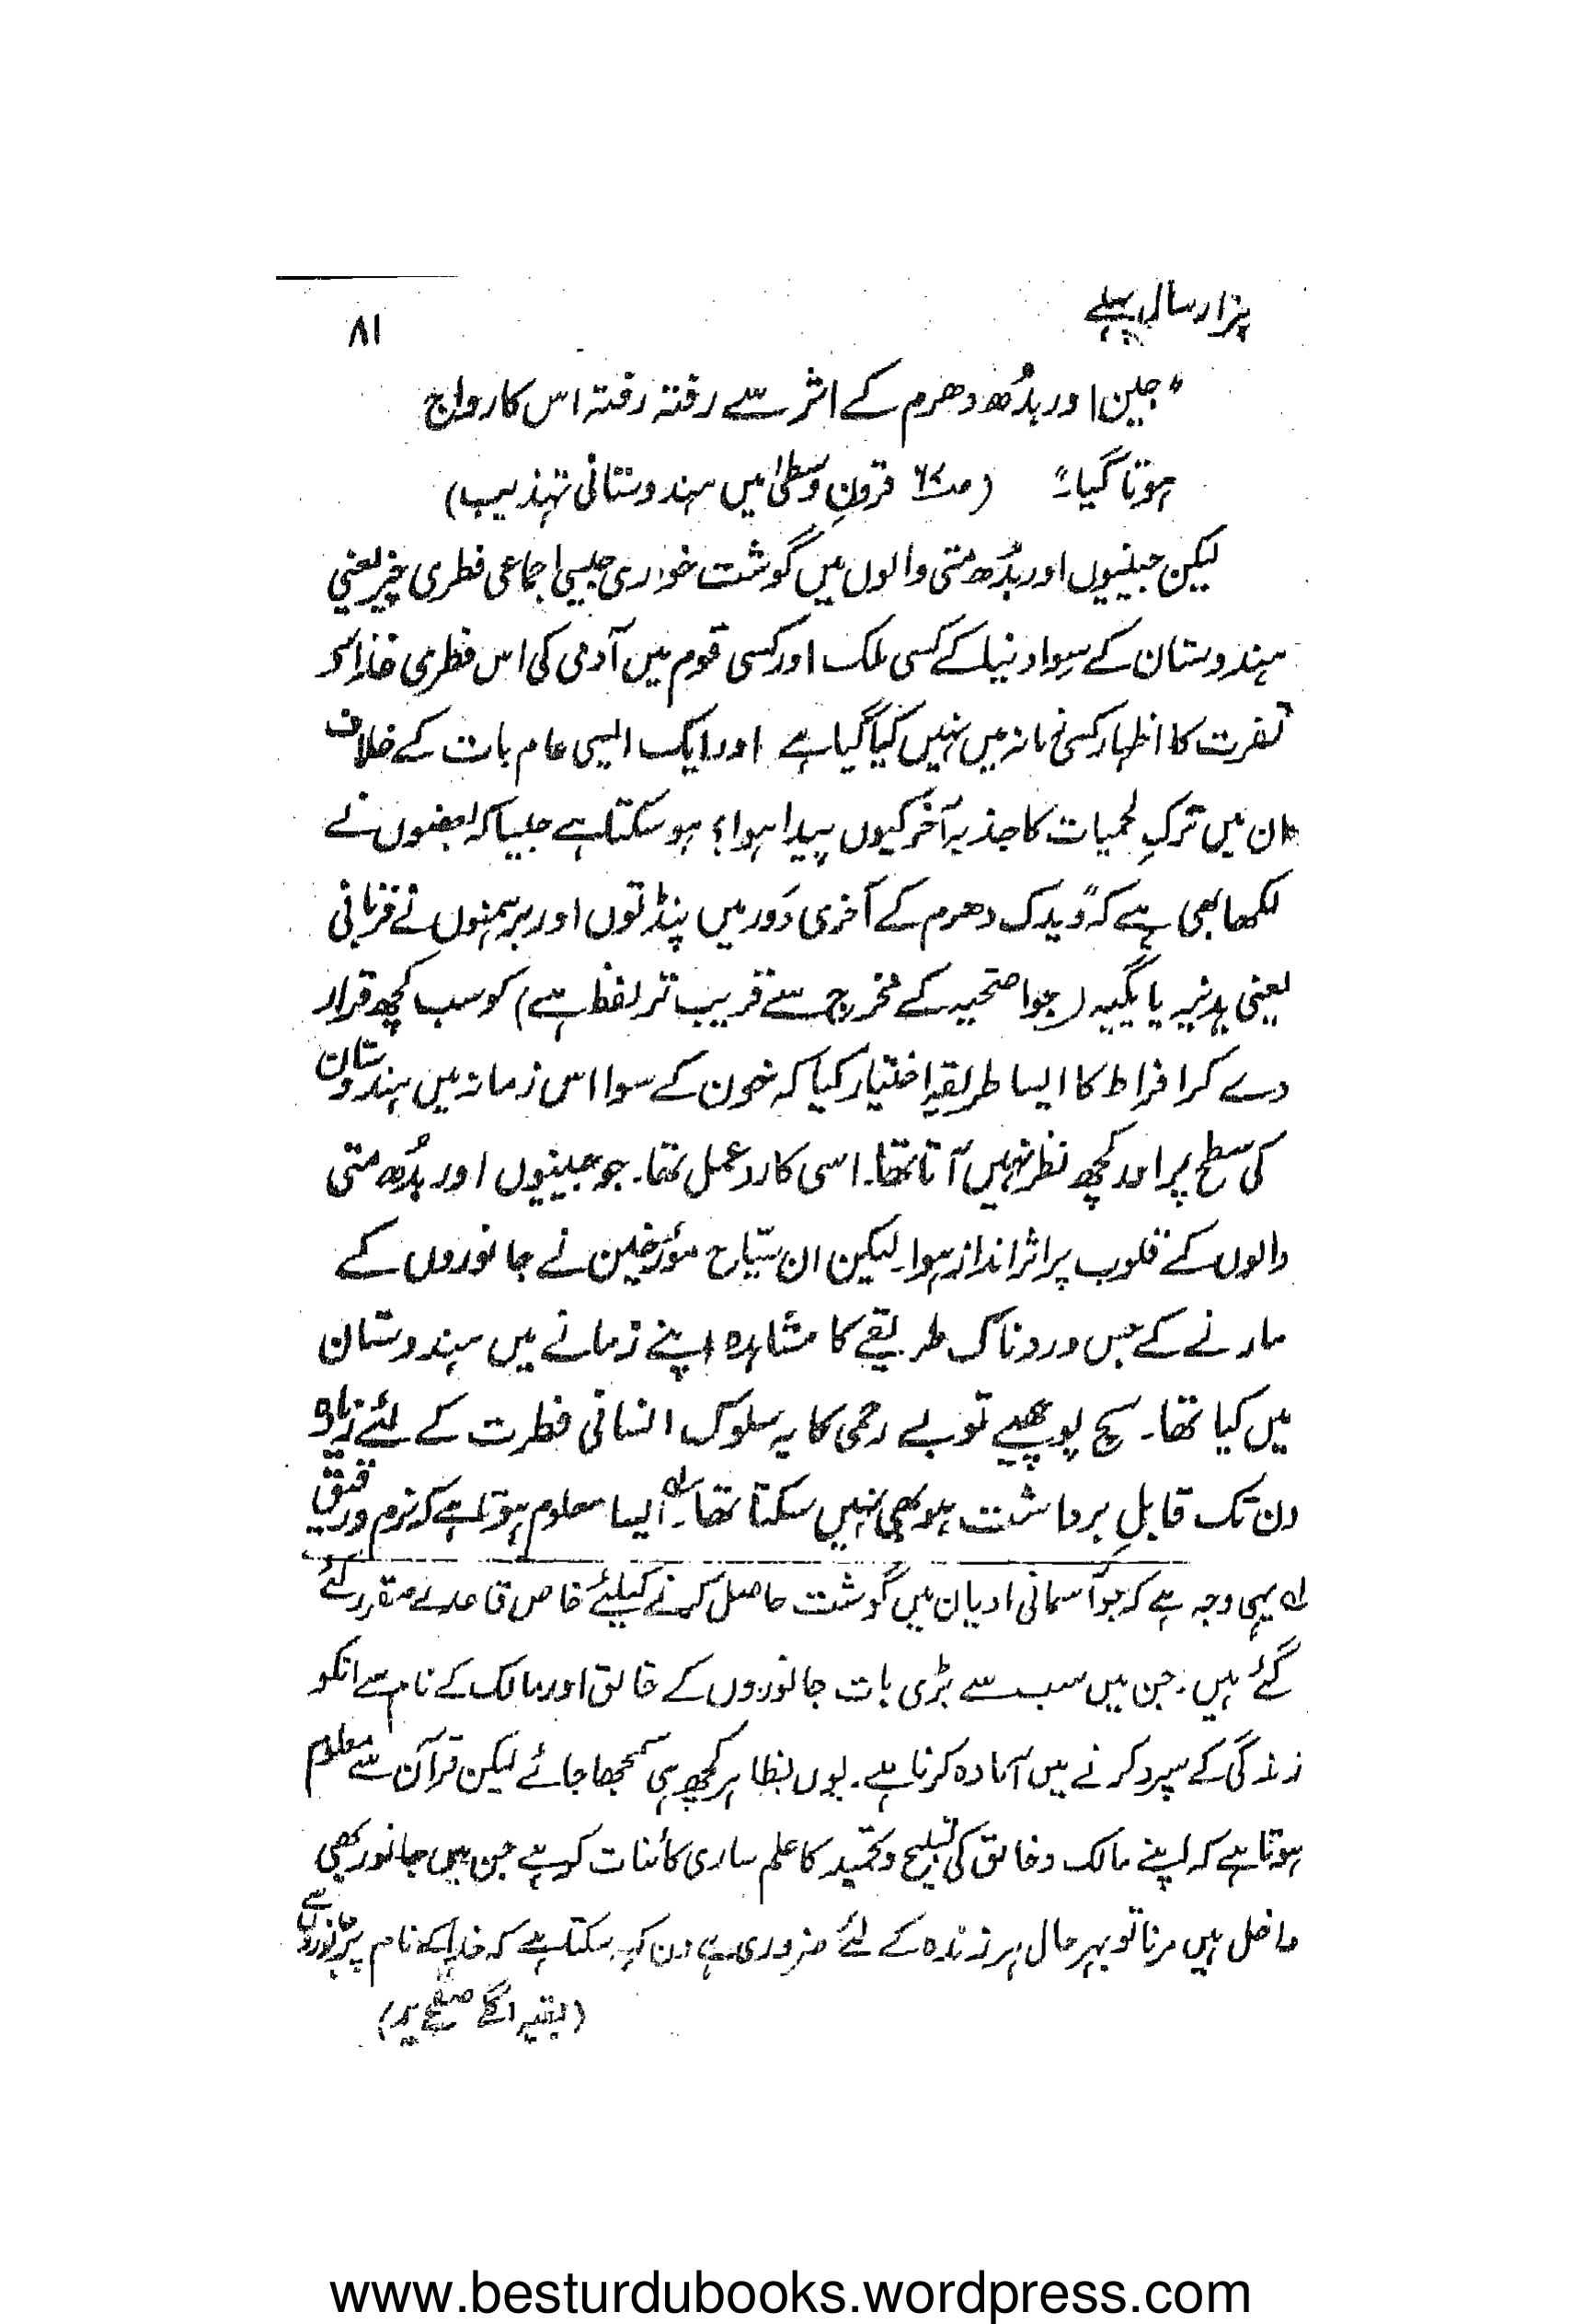 ہزار سال پہلے
۸۱
"جین اور بدُھ دھرم کے اثر سے رفتہ رفتہ اس کا رواج
ہوتا گیا۔" (ص۷۶ قرونِ وسطیٰ میں ہندوستانی تہذیب)
لیکن جینیوں اور بدُھ متی والوں میں گوشت خواری جیسی اجماعی فطری چیز یعنی
ہندوستان کے سوا دنیا کے کسی ملک اور کسی قوم میں آدمی کی اس فطری غذا سے
نفرت کا اظہار کسی زمانہ میں نہیں کیا گیا ہے اور ایک ایسی عام بات کے خلاف
ان میں ترکِ لحمیات کا جذبہ آخر کیوں پیدا ہوا؟ ہو سکتا ہے جیسا کہ بعضوں نے
لکھا بھی ہے کہ "ویدک دھرم کے آخری دَور میں پنڈتوں اور برہمنوں نے قربانی
یعنی یدنیہ یا یگیہ (جو اضحیہ کے مخرج سے قریب تر لفظ ہے) کو سب کچھ قرار
دے کر افراط کا ایسا طریقہ اختیار کیا کہ خون کے سوا اس زمانہ میں ہندوستان
کی سطح پر اور کچھ نظر نہیں آتا تھا۔ اسی کا ردعمل تھا۔ جو جینیوں اور بدُھ متی
والوں کے قلوب پر اثر انداز ہوا۔ لیکن ان سیّاح مؤرخین نے جانوروں کے
مارنے کے جس دردناک طریقے کا مشاہدہ اپنے زمانے میں ہندوستان
میں کیا تھا۔ سچ پوچھیے تو بے رحمی کا یہ سلوک انسانی فطرت کے لئے زیادہ
دن تک قابلِ برداشت ہو بھی نہیں سکتا تھا۔ لہ ایسا معلوم ہوتا ہے کہ نرم و رقیق
لہ یہی وجہ ہے کہ جو آسمانی ادیان میں گوشت حاصل کرنے کیلئے خاص قاعدے مقرر کئے
گئے ہیں۔ جن میں سب سے بڑی بات جانوروں کے خالق اور مالک کے نام سے انکو
زندگی کے سپرد کرنے میں آمادہ کرنا ہے۔ یوں بظاہر کچھ ہی سمجھا جائے لیکن قرآن سے معلوم
ہوتا ہے کہ اپنے مالک و خالق کی تسبیح و تحمید کا علم ساری کائنات کو ہے جن میں جانور بھی
داخل ہیں مرنا تو بہرحال ہر زندہ کے لئے ضروری ہے۔ کون کہہ سکتا ہے کہ خدا کے نام پر جانوروں سے
(بقیہ اگلے صفحے پر)
www.besturdubooks.wordpress.com